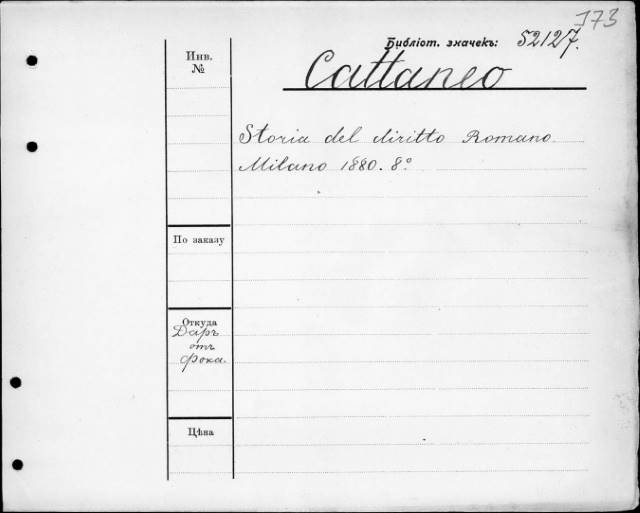 173
Библіот. значекъ: 52127.
Инв.
№
Cattaneo
Storia del diritto Romano.
Milano 1880. 8º
По заказу
Откуда
Даръ
отъ
Фока.
Цѣна